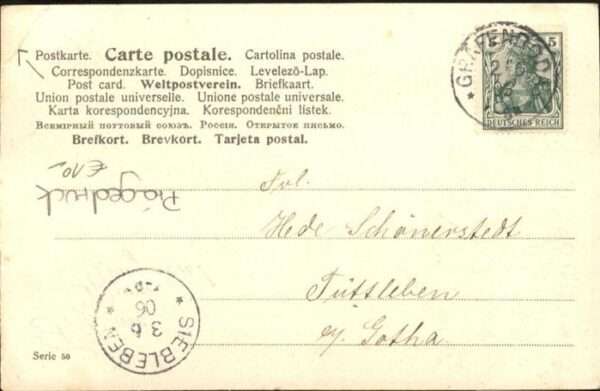 Postkarte. Carte postale. Cartolina postale.
Correspondenzkarte. Dopisnice. Levelező-Lap.
Post card. Weltpostverein. Briefkaart.
Union postale universelle. Unione postale universale.
Karta korespondencyjna. Korespondenční lístek.
Всемірный почтовый союзъ. Россія. Открытое письмо.
Brefkort. Brevkort. Tarjeta postal.
5
DEUTSCHES REICH
Prägedruck
Frl.
Hede Schönerstedt
Tüttleben
b/. Gotha
* SIEBLEBEN *
3 6
06
Serie 50